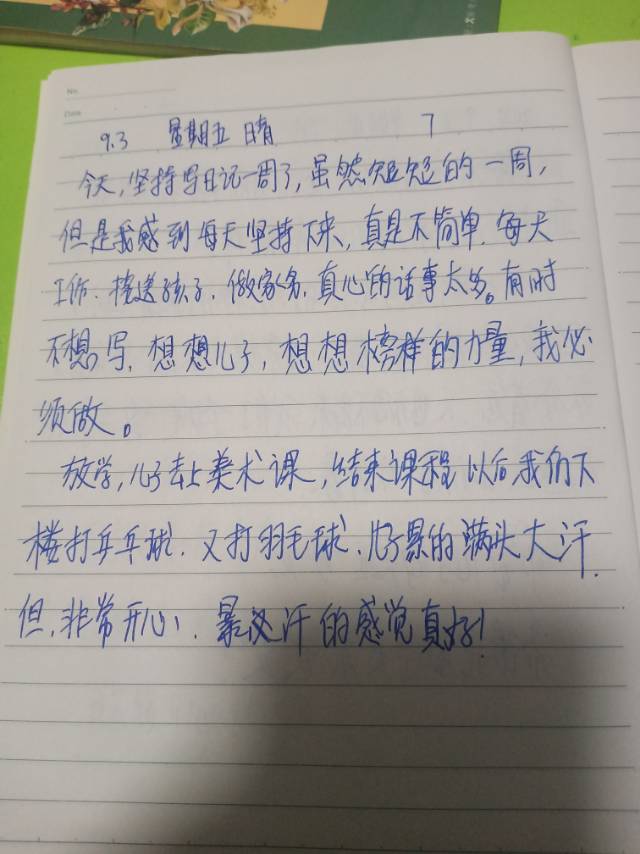 No.
Date
9.3 星期五 晴 7
今天,坚持写日记一周了,虽然短短的一周,
但是我感到每天坚持下来,真是不简单.每天
工作.接送孩子.做家务.真心的话事太多。有时
不想写,想想儿子,想想榜样的力量,我必
须做。
放学,儿子去上美术课,结束课程以后我们下
楼打乒乓球.又打羽毛球.儿子累的满头大汗.
但,非常开心、.暴汗的感觉真好!